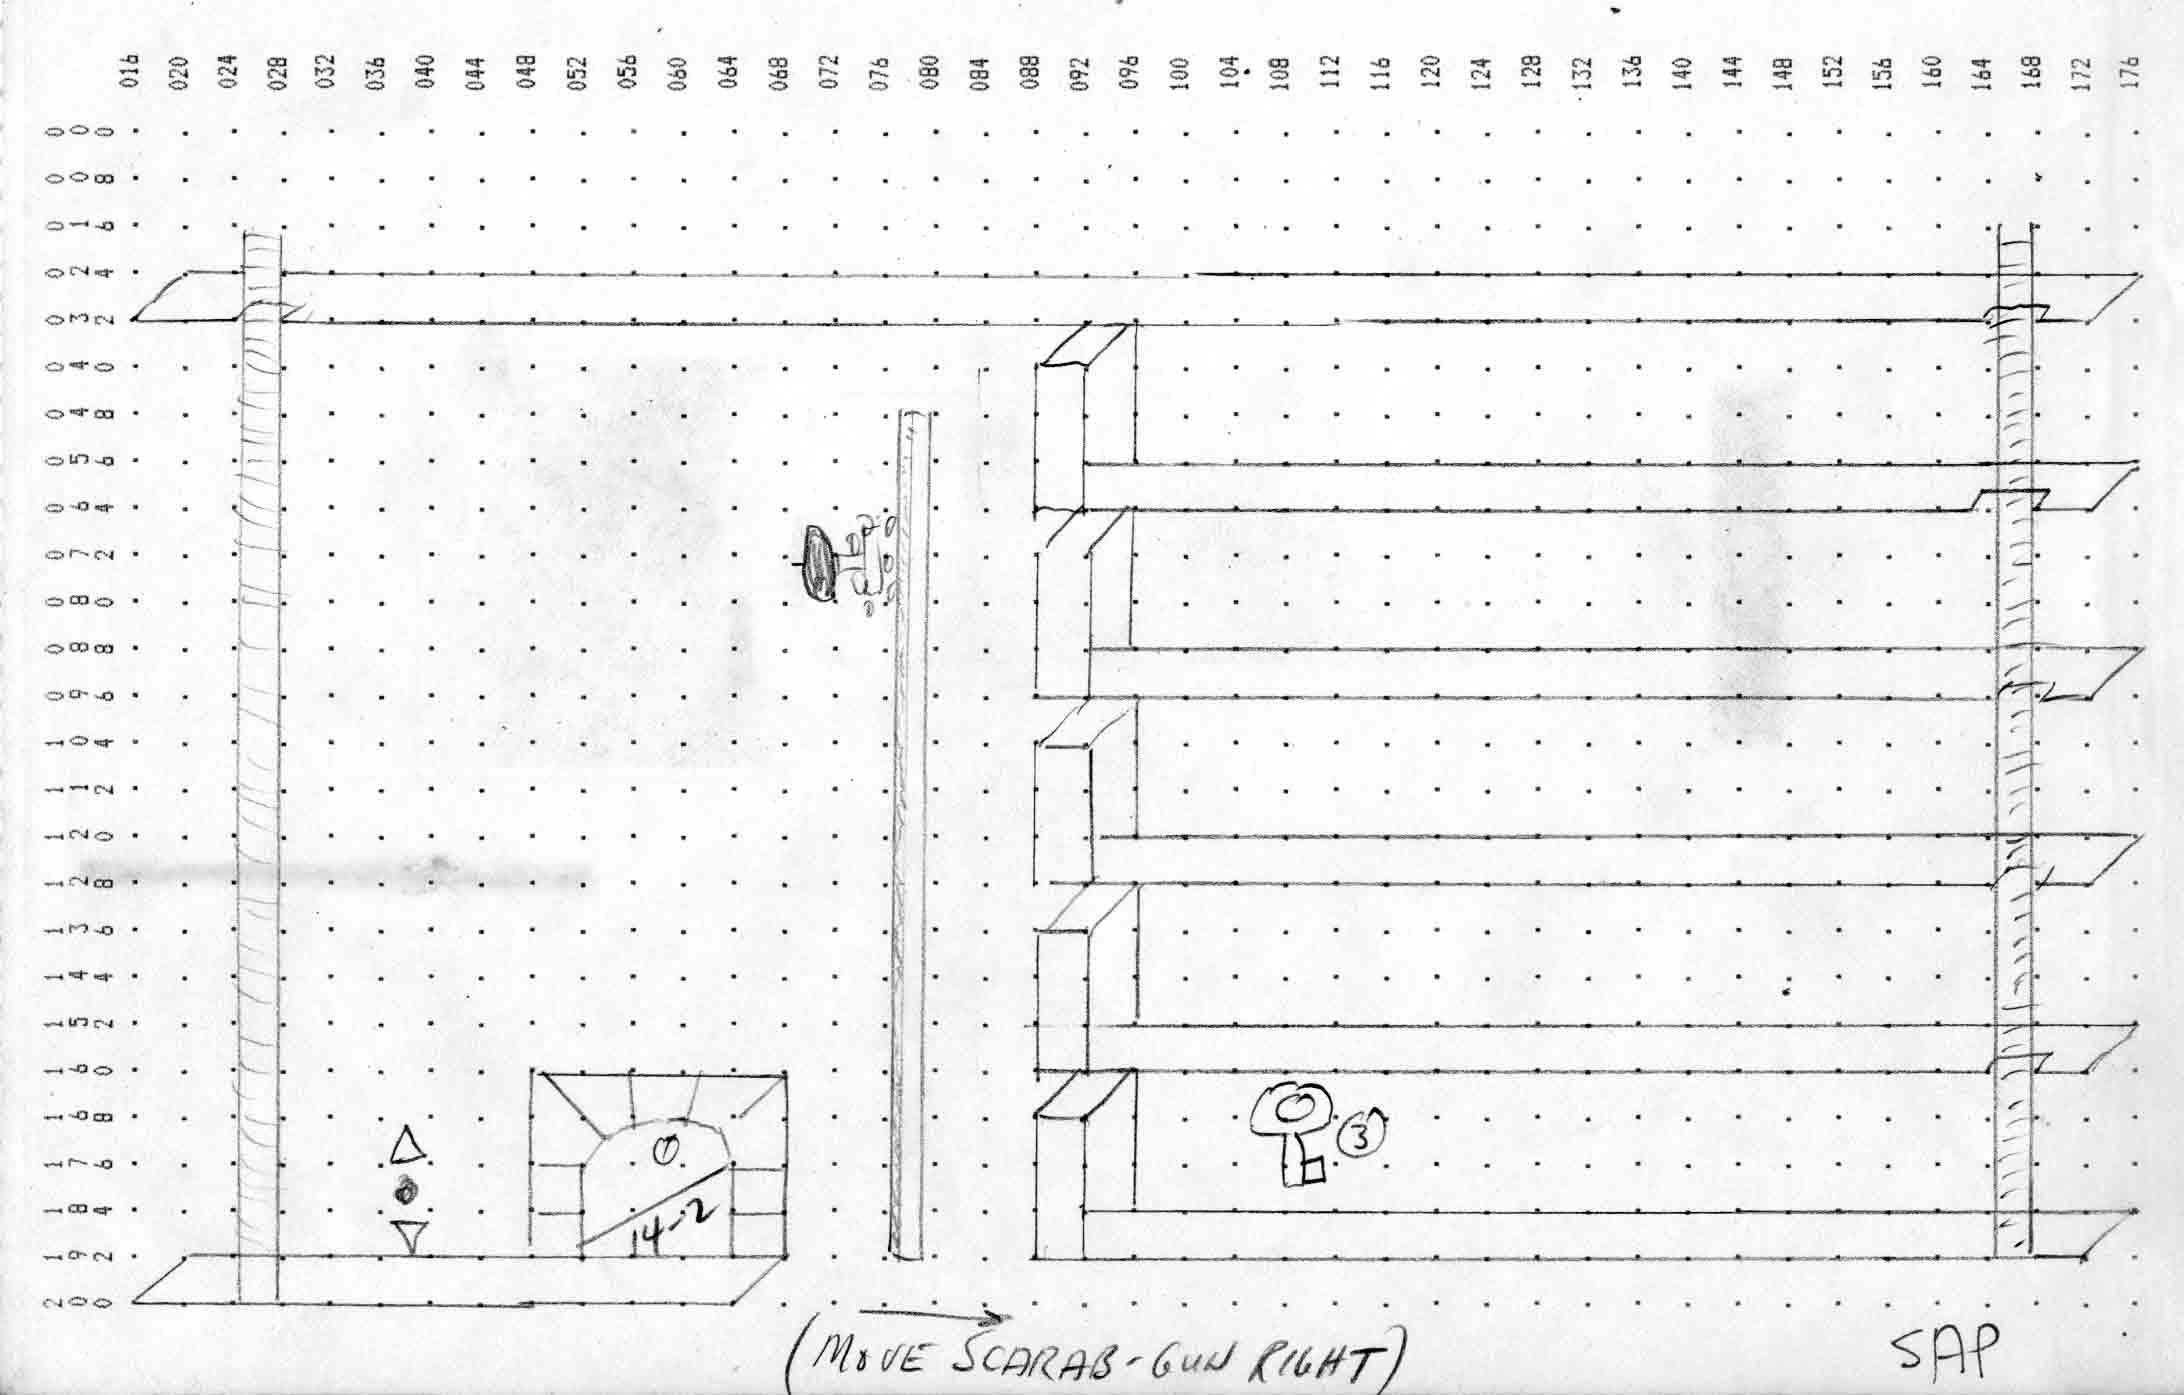 016 020 024 028 032 036 040 044 048 052 056 060 064 068 072 076 080 084 088 092 096 100 104 108 112 116 120 124 128 132 136 140 144 148 152 156 160 164 168 172 176
000
008
016
024
032
040
048
056
064
072
080
088
096
104
112
120
128
136
144
152
160
168
3
176
184
14-2
192
200
(MOVE SCARAB-GUN RIGHT)
SAP